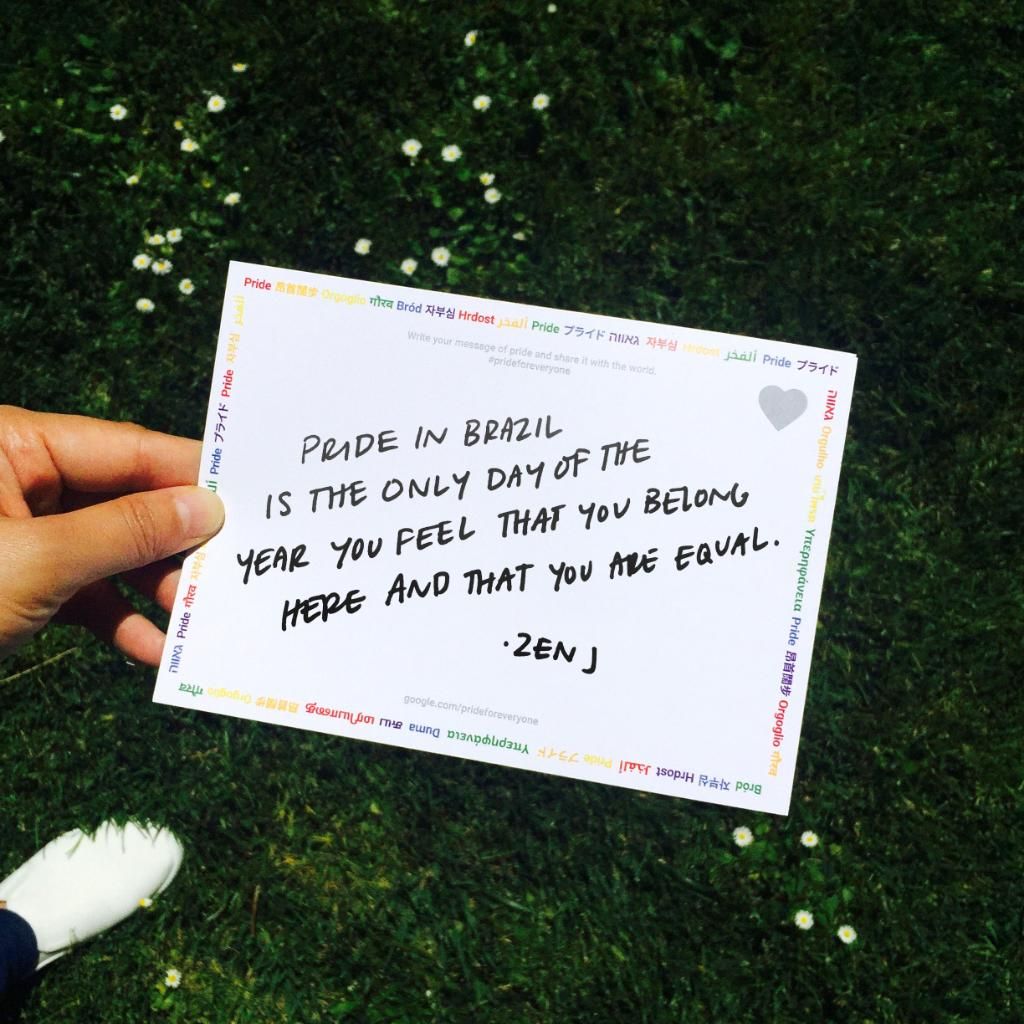 Pride 昂首闊步 Orgoglio गौरव Bród 자부심 Hrdost ألفخر Pride プライド גאווה 자부심 Hrdost ألفخر Pride プライド
Write your message of pride and share it with the world.
#prideforeveryone
PRIDE IN BRAZIL
IS THE ONLY DAY OF THE
YEAR YOU FEEL THAT YOU BELONG
HERE AND THAT YOU ARE EQUAL.
·ZEN J
google.com/prideforeveryone
גאווה Orgulho Υπερηφάνεια Pride 昂首闊步 Orgoglio गौरव
Bród 자부심 Hrdost ألفخر Pride プライド Υπερηφάνεια Duma
昂首闊步 Orgoglio गौरव
גאווה Pride गौरव 자부심
Pride プライド Pride 자부심 ألفخر